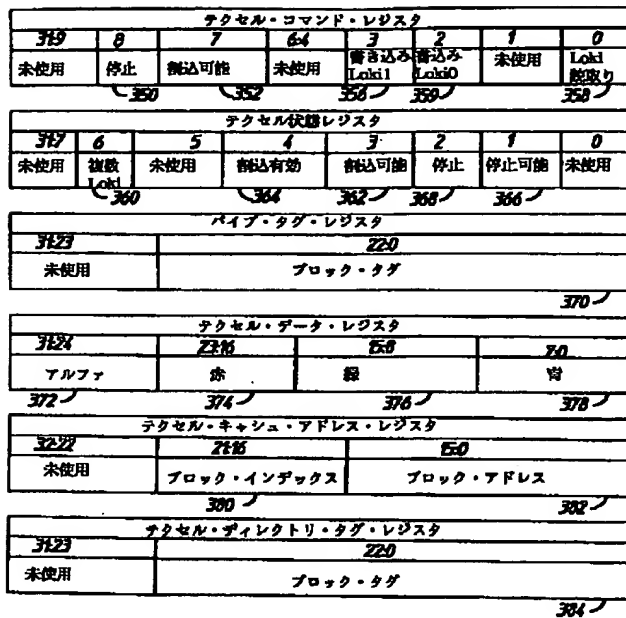 テクセル・コマンド・レジスタ
31:9 8 7 6:4 3 2 1 0
未使用 停止 割込可能 未使用 書き込みLoki1 書込みLoki0 未使用 Loki読取り
350 352 356 359 358
テクセル状態レジスタ
31:7 6 5 4 3 2 1 0
未使用 複数Loki 未使用 割込有効 割込可能 停止 停止可能 未使用
360 364 362 368 366
パイプ・タグ・レジスタ
31:23 22:0
未使用 ブロック・タグ
370
テクセル・データ・レジスタ
31:24 23:16 15:8 7:0
アルファ 赤 緑 青
372 374 376 378
テクセル・キャシュ・アドレス・レジスタ
32:22 21:16 15:0
未使用 ブロック・インデックス ブロック・アドレス
380 382
テクセル・ディレクトリ・タグ・レジスタ
31:23 22:0
未使用 ブロック・タグ
384